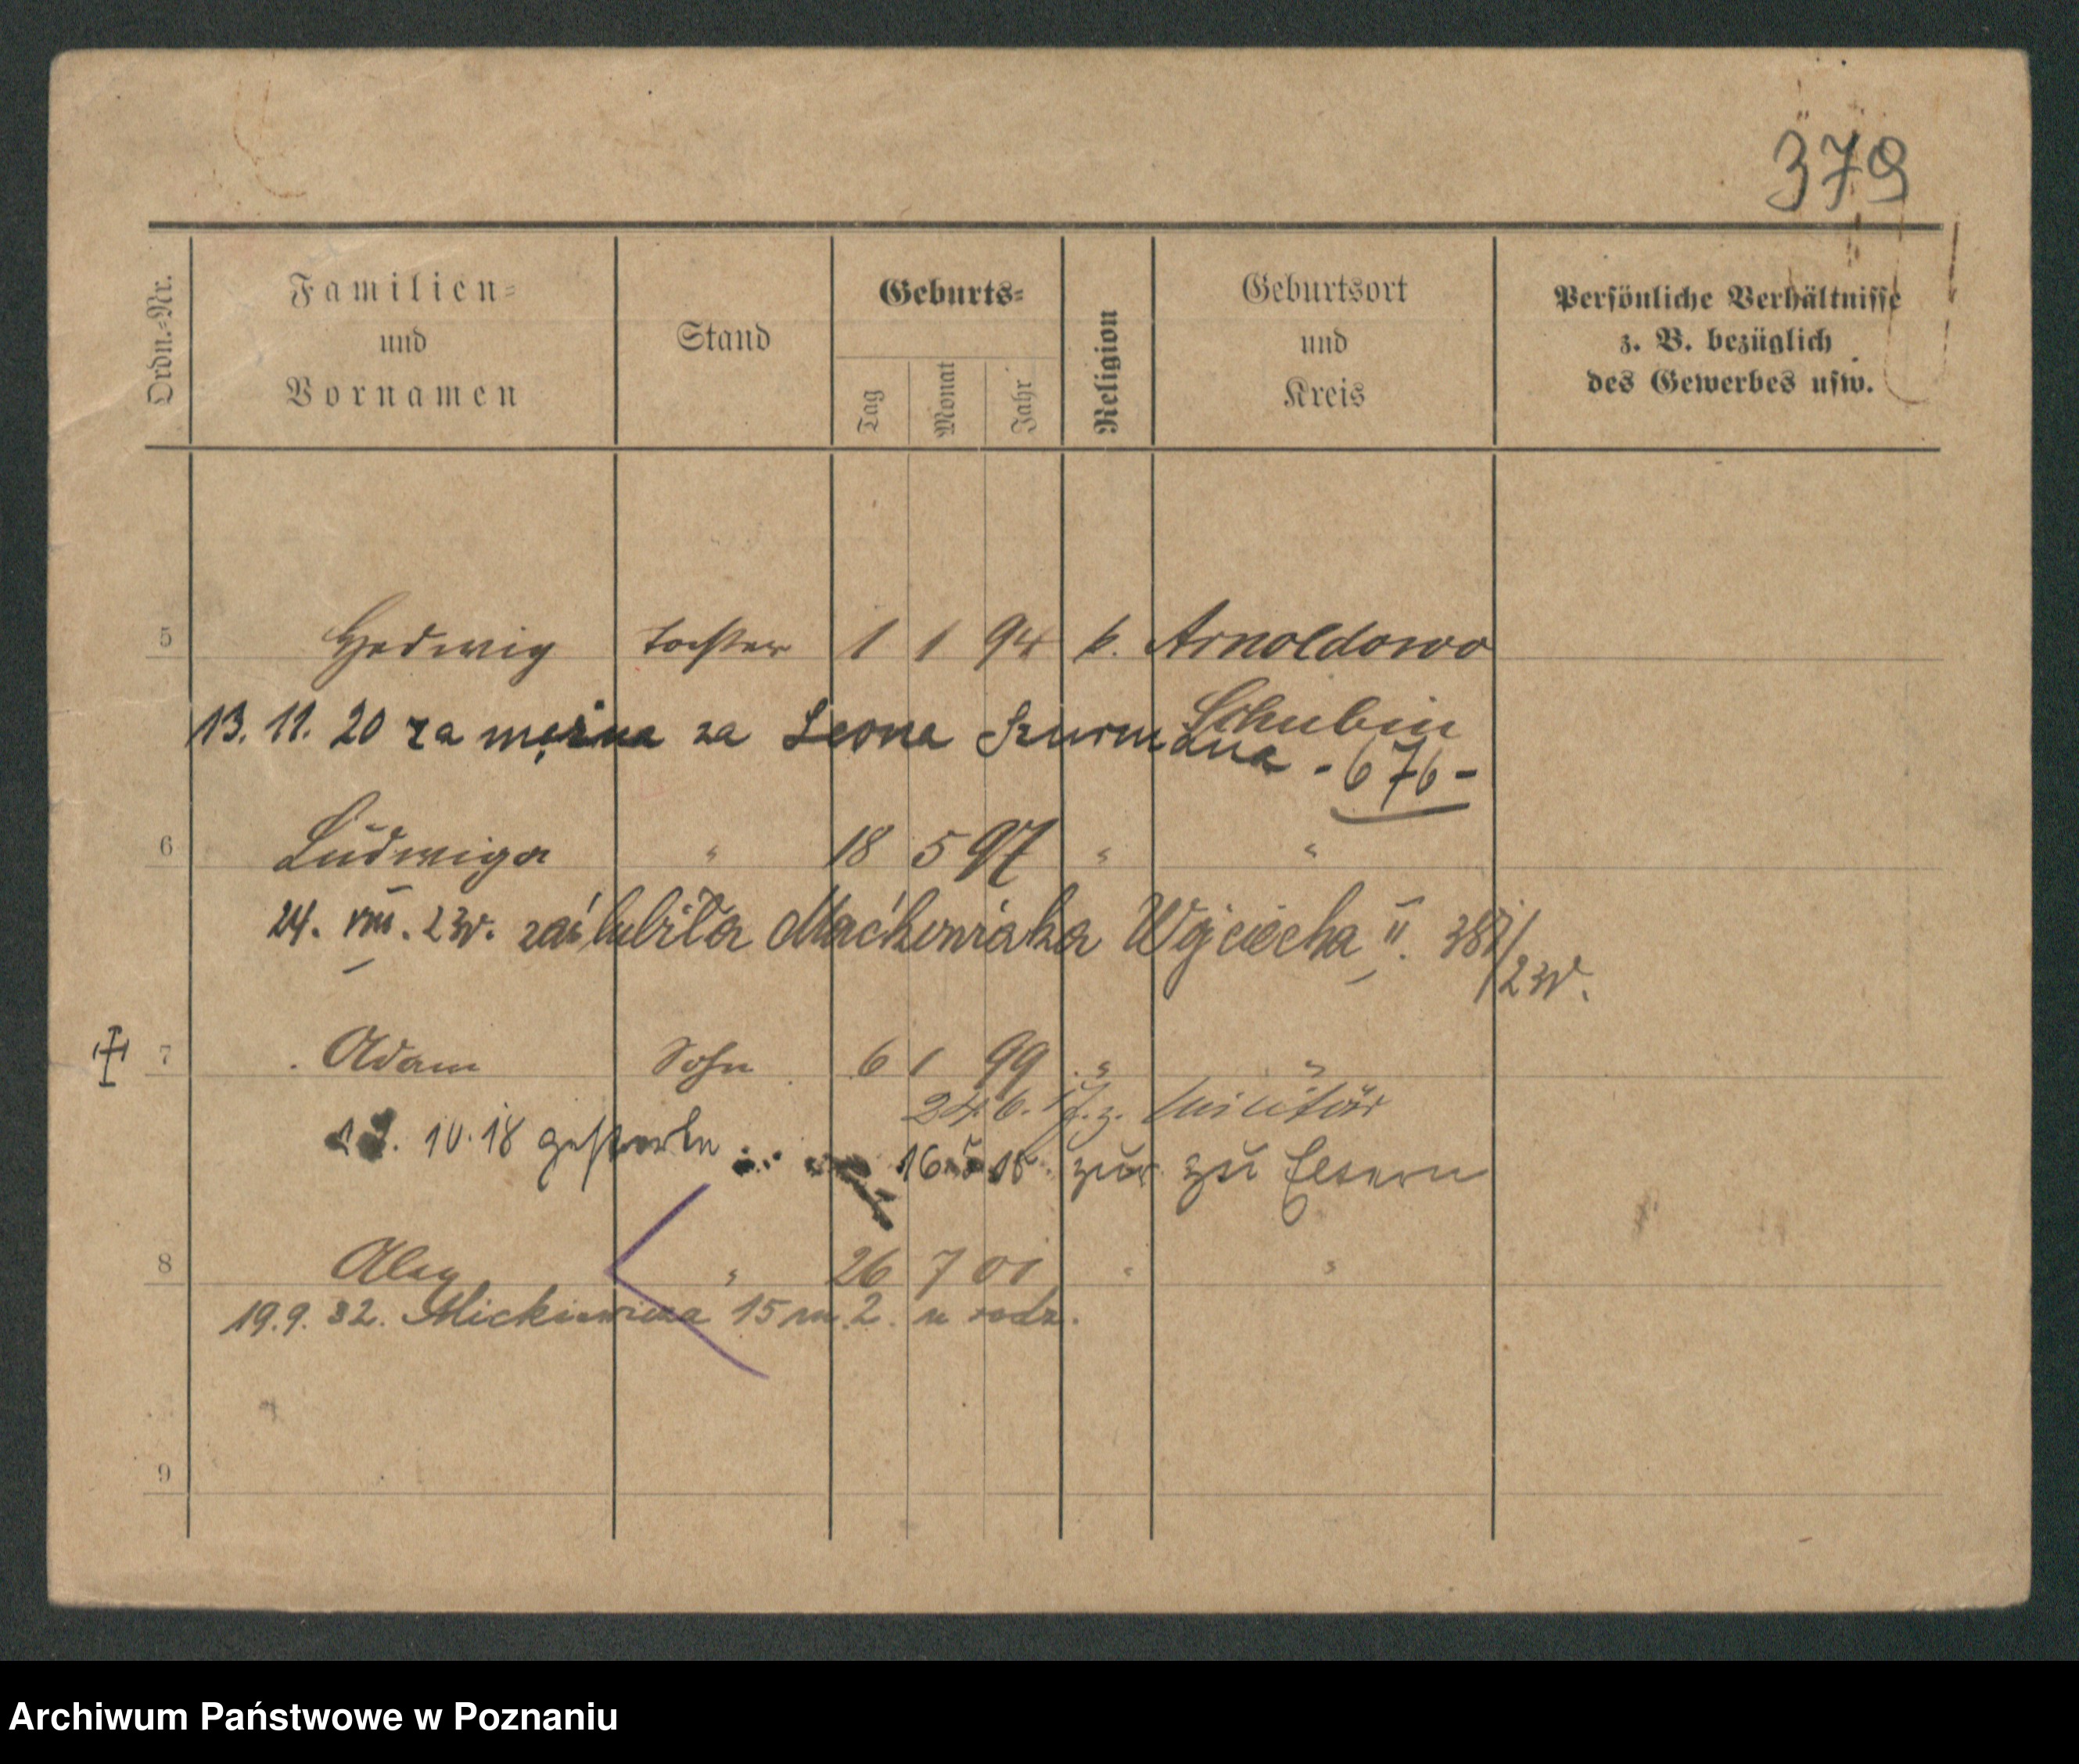 379
Ordn.-Nr.
Familien-
und
Vornamen
Stand
Geburts-
Tag
Monat
Jahr
Religion
Geburtsort
und
Kreis
Persönliche Verhältnisse
z. B. bezüglich
des Gewerbes usw.
5 Hedwig Tochter 1 1 94 k. Arnoldowo
Schubin
13. 11. 20 za mężna za Leona Szurmana - 676 -
6 Ludwiga " 18 5 97 " "
24. VIII. 23r. zaślubiła Maćkowiaka Wojciecha II. 381/23r.
7 Adam Sohn 6 1 99 " "
24. 6. 17 z. Militär
10. 18 gestorben
16 18 zur. zu Eltern
8 " 26 7 01 " "
19. 9. 32. Mickiewicza 15 m. 2. u rodz.
9
Archiwum Państwowe w Poznaniu